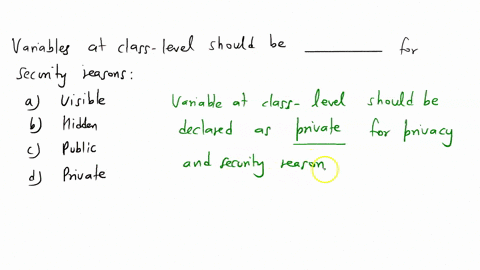 Variables at class-level should be ________ for
security reasons:
a) Visible
b) Hidden
c) Public
d) Private
Variable at class-level should be
declared as private for privacy
and security reason